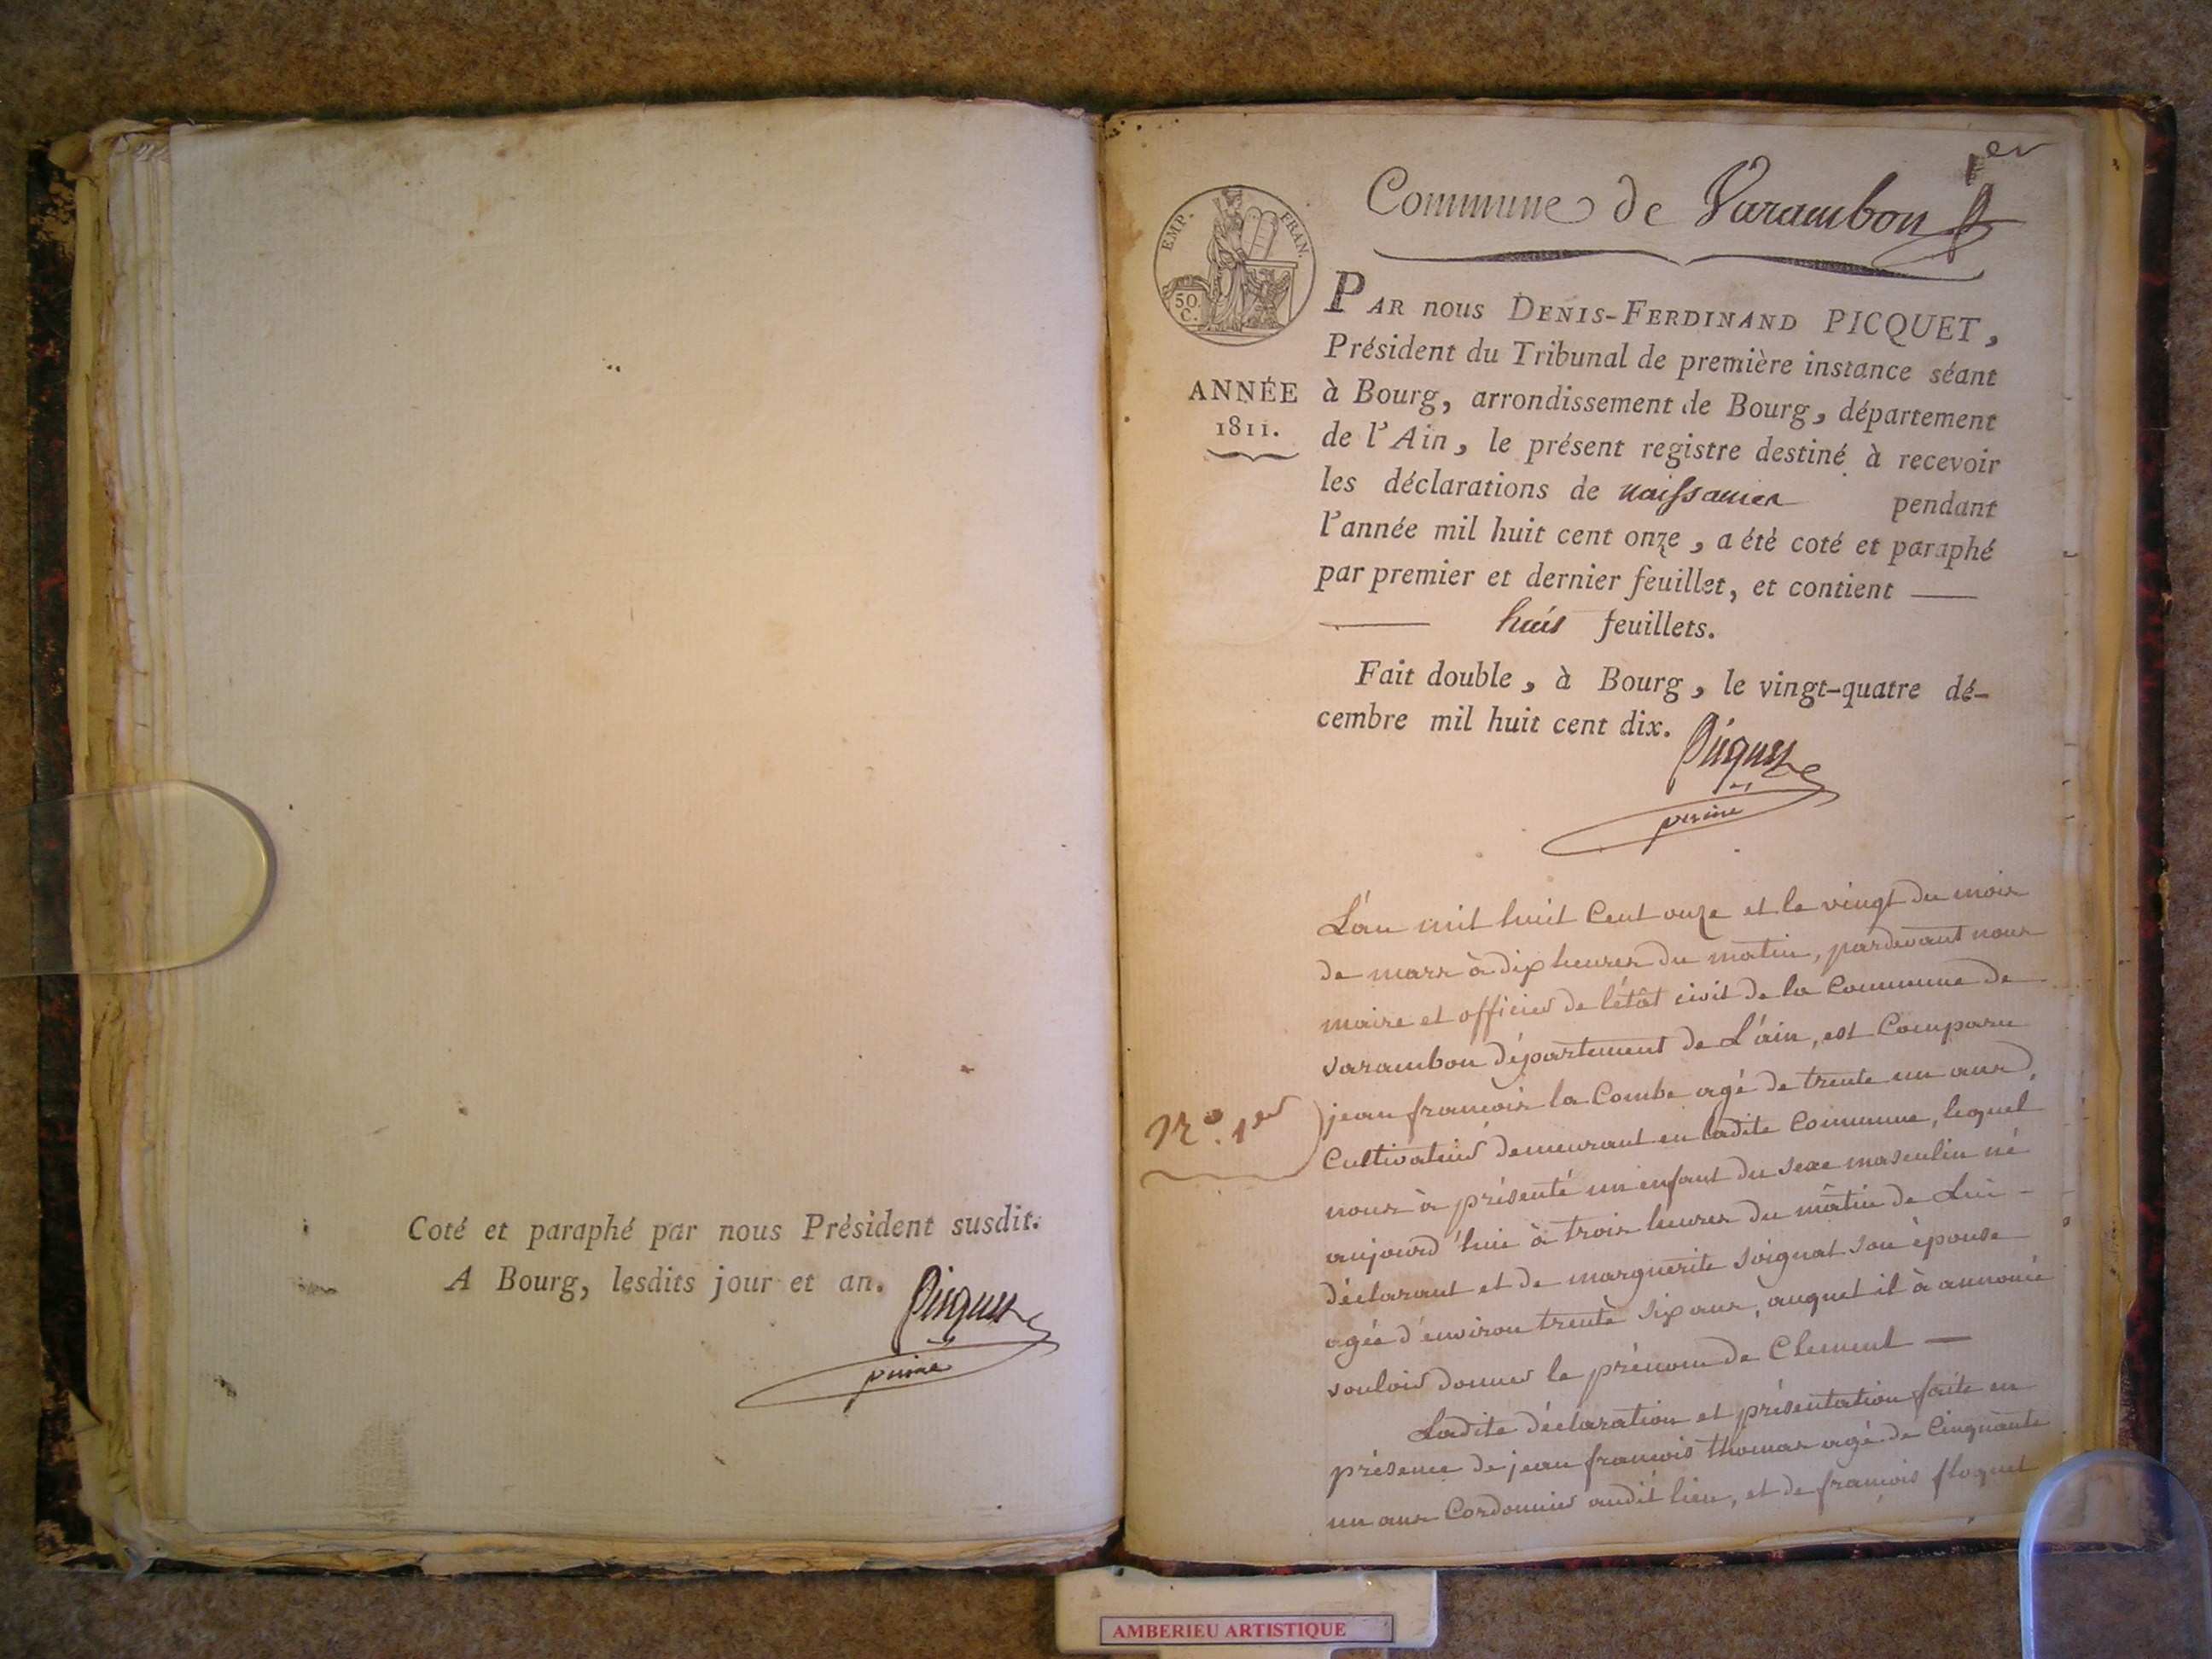 Coté et paraphé par nous Président susdit.
A Bourg, lesdits jour et an.
Picquet
1er
Commune de Varambon
EMP. FRAN.
50.
C.
ANNÉE
1811.
PAR nous DENIS-FERDINAND PICQUET,
Président du Tribunal de première instance séant
à Bourg, arrondissement de Bourg, département
de l'Ain, le présent registre destiné à recevoir
les déclarations de naissances pendant
l'année mil huit cent onze, a été coté et paraphé
par premier et dernier feuillet, et contient
huit feuillets.
Fait double, à Bourg, le vingt-quatre dé-
cembre mil huit cent dix.
Picquet
N.º 1er
L'an mil huit Cent onze et le vingt du mois
de mars à dix heures du matin, pardevant nous
maire et officier de l'étât civil de la Commune de
varambon département de L'ain, est Comparu
jean francois la Combe agé de trente un ans,
Cultivateur demeurant en ladite Commune, lequel
nous à présenté un enfant du sexe masculin né
aujourd'hui à trois heures du mâtin de Lui
déclarant et de marguerite soignat son épouse
agée d'environ trente six ans, auquel il à annoncé
vouloir donner le prénom de Clement
Ladite déclaration et présentation faite en
présence de jean francois thomas agé de Cinquante
un ans Cordonnier audit lieu, et de francois floquet
AMBERIEU ARTISTIQUE